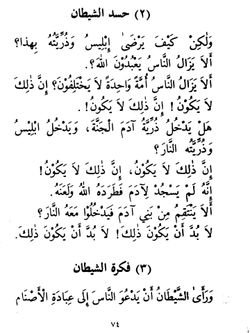 (٢) حسد الشيطان
وَلٰكِنْ كَيْفَ يَرْضَىٰ إِبْلِيسُ وَذُرِّيَّتُهُ بِهٰذَا؟
أَلَا يَزَالُ النَّاسُ يَعْبُدُونَ اللهَ؟.
أَلَا يَزَالُ النَّاسُ أُمَّةً وَاحِدَةً لَا يَخْتَلِفُونَ؟ إِنَّ ذٰلِكَ
لَا يَكُونُ! إِنَّ ذٰلِكَ لَا يَكُونُ!.
هَلْ يَدْخُلُ ذُرِّيَّةُ آدَمَ الْجَنَّةَ، وَيَدْخُلُ إِبْلِيسُ
وَذُرِّيَّتُهُ النَّارَ؟
إِنَّ ذٰلِكَ لَا يَكُونُ، إِنَّ ذٰلِكَ لَا يَكُونُ!
إِنَّهُ لَمْ يَسْجُدْ لِآدَمَ فَطَرَدَهُ اللهُ وَلَعَنَهُ.
أَلَا يَنْتَقِمُ مِنْ بَنِي آدَمَ فَيَدْخُلُوا مَعَهُ النَّارَ؟
لَا بُدَّ أَنْ يَكُونَ ذٰلِكَ! لَا بُدَّ أَنْ يَكُونَ ذٰلِكَ.
(٣) فكرة الشيطان
وَرَأَى الشَّيْطَانُ أَنْ يَدْعُوَ النَّاسَ إِلَى عِبَادَةِ الْأَصْنَامِ
٧٤